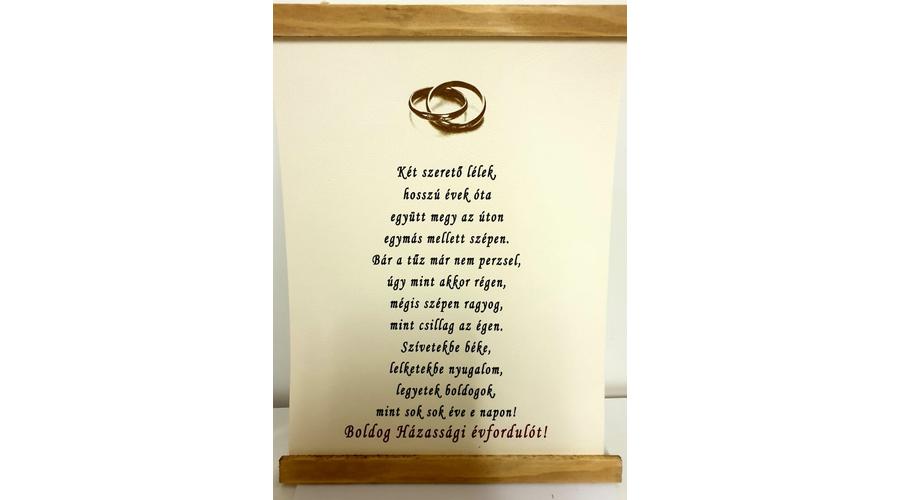 Két szerető lélek,
hosszú évek óta
együtt megy az úton
egymás mellett szépen.
Bár a tűz már nem perzsel,
úgy mint akkor régen,
mégis szépen ragyog,
mint csillag az égen.
Szívetekbe béke,
lelketekbe nyugalom,
legyetek boldogok,
mint sok sok éve e napon!
Boldog Házassági évfordulót!